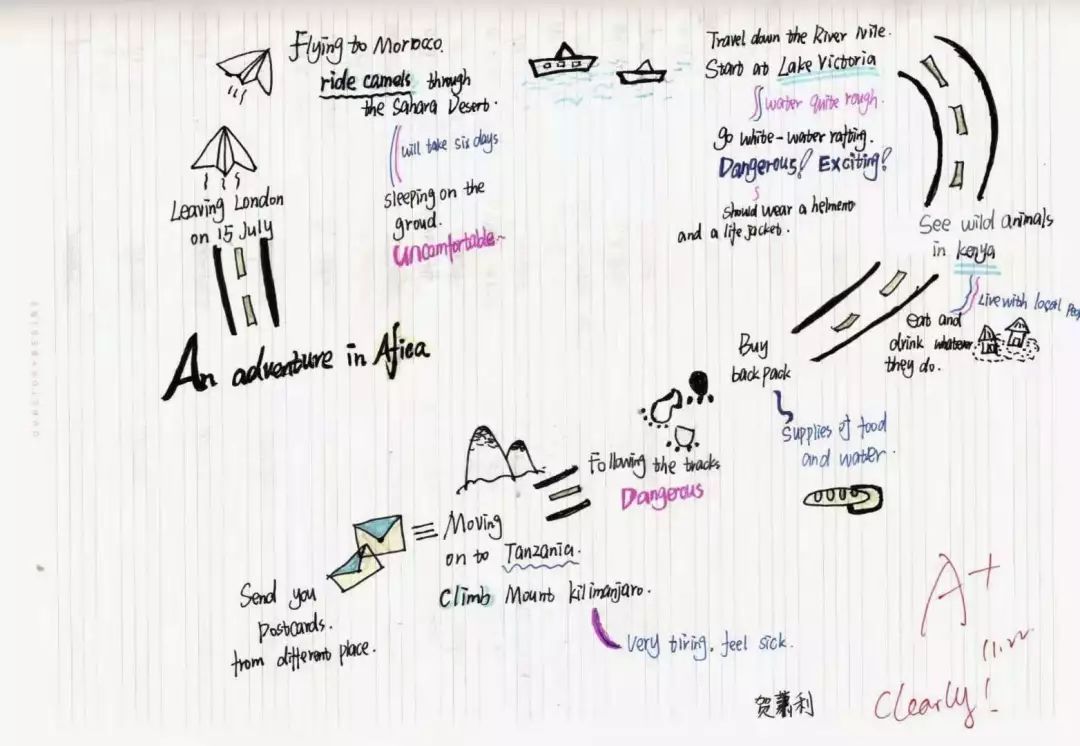 Flying to Morocco.
ride camels through
the Sahara Desert.
will take six days
sleeping on the
groud.
uncomfortable~
Leaving London
on 15 July
An adventure in Afica
Travel down the River Nile.
Start at Lake Victoria
water quite rough.
go white-water rafting.
Dangerous! Exciting!
should wear a helment
and a life jacket.
See wild animals
in kenya
Live with local
eat and
drink whatever
they do.
Buy
backpack
Supplies of food
and water.
Following the tracks
Dangerous
Moving
on to Tanzania.
Climb Mount kilimanjaro.
Very tiring. feel sick.
Send you
postcards.
from different place.
A+
11.22
Clearly!
贺萧利